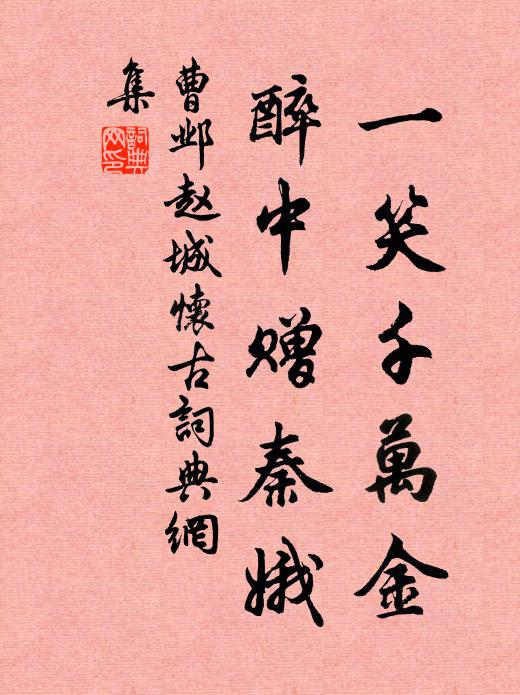 一笑千萬金
醉中赠秦娥
曹邺赵城懷古詞典網
集
詞典
网印